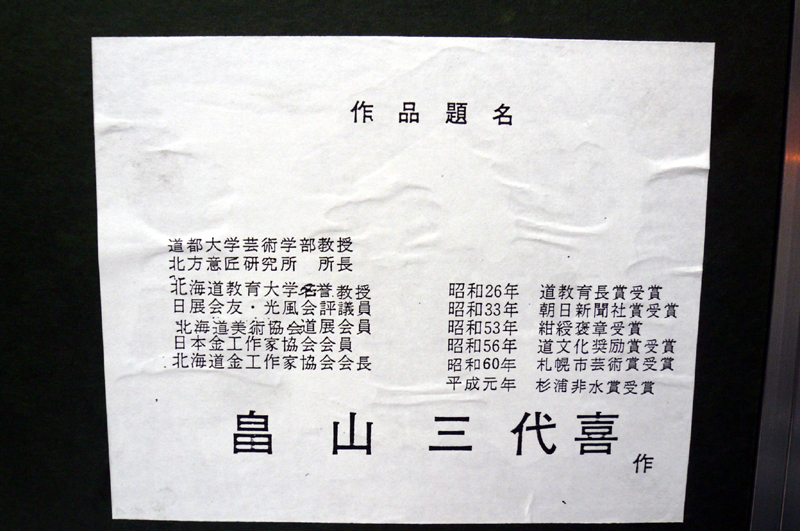 作品題名
道都大学芸術学部教授
北方意匠研究所 所長
北海道教育大学名誉教授
日展会友・光風会評議員
北海道美術協会道展会員
日本金工作家協会会員
北海道金工作家協会会長
昭和26年 道教育長賞受賞
昭和33年 朝日新聞社賞受賞
昭和53年 紺綬褒章受賞
昭和56年 道文化奨励賞受賞
昭和60年 札幌市芸術賞受賞
平成元年 杉浦非水賞受賞
畠山三代喜
作